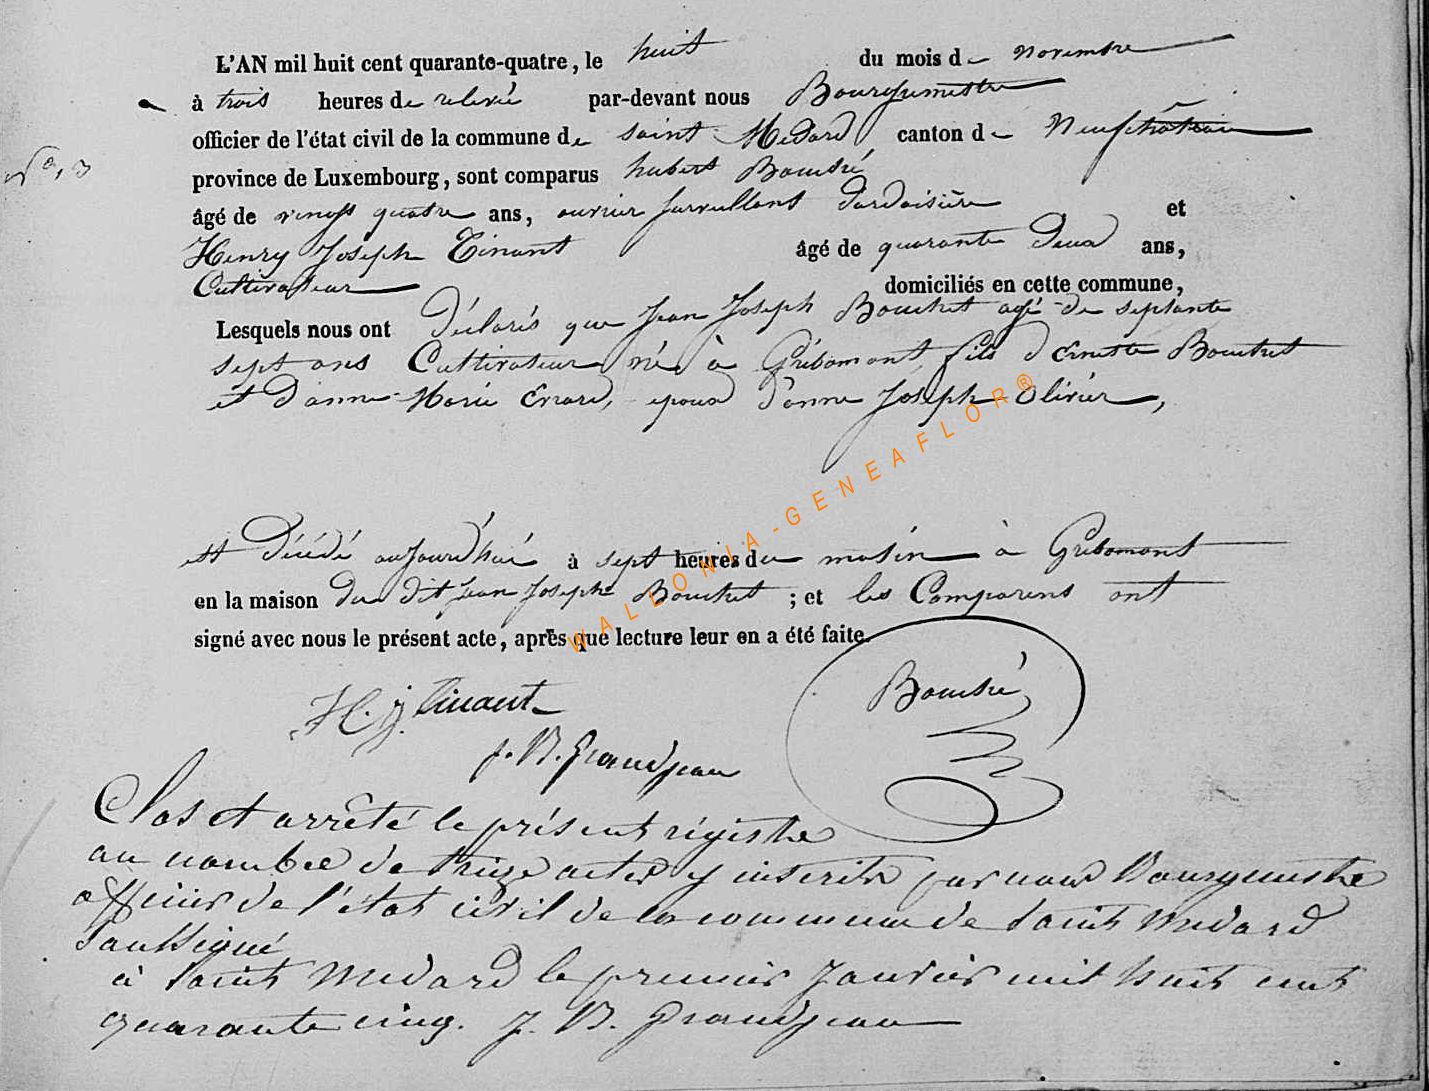 L'AN mil huit cent quarante-quatre, le huit du mois de novembre
à trois heures de relevée par-devant nous Bourgumestre
officier de l'état civil de la commune de saint Medard canton de Neufchateau
province de Luxembourg, sont comparus hubert Bouché
âgé de vingt quatre ans, ouvrier surveillant d'ardoisière et
Henry Joseph Tinant âgé de quarante deux ans,
Cultivateur domiciliés en cette commune,
Lesquels nous ont déclarés que Jean Joseph Bouchet agé de septante
sept ans Cultivateur né à Gribomont, fils d'Erneste Bouchet
et d'anne Marie Errard, epoux d'anne Joseph Olivier,
est décédé aujourd'hui à sept heures du matin à Gribomont
en la maison du dit Jean Joseph Bouchet ; et les Comparens ont
signé avec nous le présent acte, après que lecture leur en a été faite.
Bouché
H. J. Tinant
J. B. Grandjean
Clos et arrêté le présent régistre
au nombre de treize actes y inscrits par nous Bourgmestre
officier de l'état civil de la commune de Saint Medard
Soussigné
à Saint Medard le premier Janvier mil huit cent
quarante cinq. J. B. Grandjean
WALLONIA-GENEAFLOR®